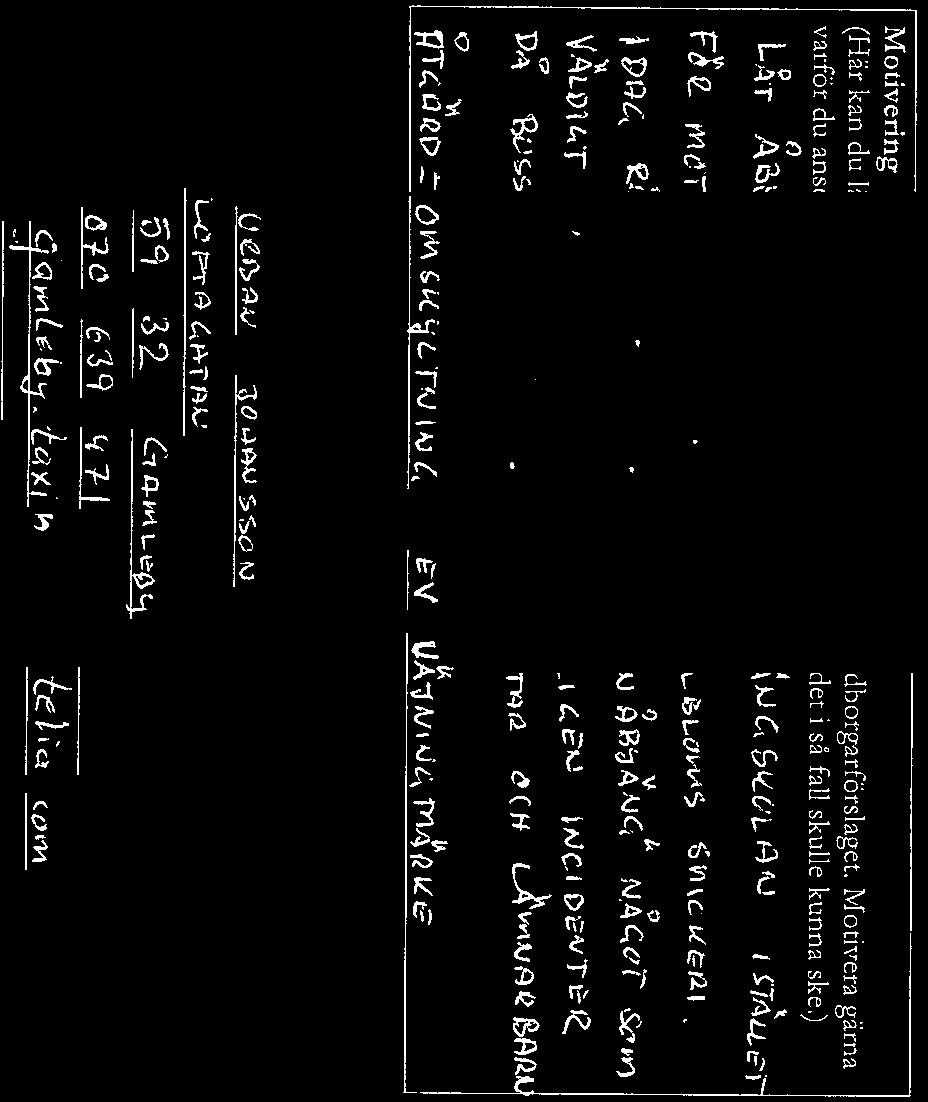 Motivering
(Här kan du l dborgarförslaget. Motivera gärna
varför du ans det i så fall skulle kunna ske.)
LÅT ÅB INGSKOLAN ISTÄLLET
FÖR MOT LBLOMS SNICKERI.
IDAG R NÅBJÄNG NÅGOT SOM
VÄLDIGT IGEN INCIDENTER
DÅ BUSS TAR OCH LÄMNAR BARN
ÅTGÄRD = OMSKYLTNING EV VÄJNINGMÄRKE
URBAN JOHANSSON
LOFTAGATAN
59 32 GAMLEBY
070 639 471
gamleby.taxi telia com